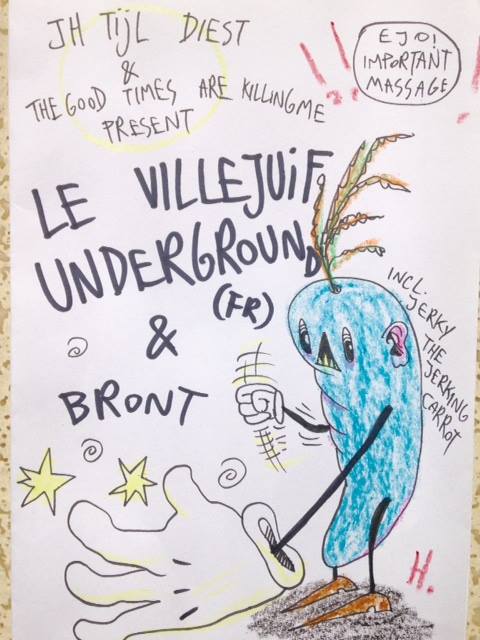 JH TijL DIEST
&
THE GOOD TIMES ARE KILLINGME
PRESENT
EJO!
IMPORTANT
MASSAGE
LE VILLEJUiF
UNDERGROUND
(FR)
&
BRONT
INCL. JERKY
THE
JERKING
CARROT
H.